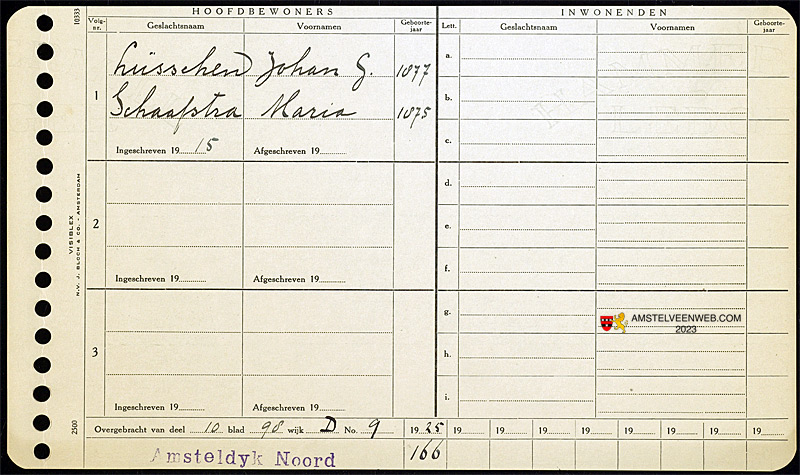 HOOFDBEWONERS
INWONENDEN
10333
Volg-nr.
Geslachtsnaam
Voornamen
Geboorte-jaar
Lett.
Geslachtsnaam
Voornamen
Geboorte-jaar
1
Lüsschen Johan G. 1877
Schaafstra Maria 1875
Ingeschreven 19 15 Afgeschreven 19
a.
b.
c.
2
Ingeschreven 19 Afgeschreven 19
d.
e.
f.
3
Ingeschreven 19 Afgeschreven 19
g.
h.
i.
VISIBLEX
N.V. J. BLOCH & CO. - AMSTERDAM
2500
AMSTELVEENWEB.COM
2023
Overgebracht van deel 10 blad 98 wijk D No. 9 19 25 19 19 19 19 19 19 19 19
Amsteldyk Noord 166